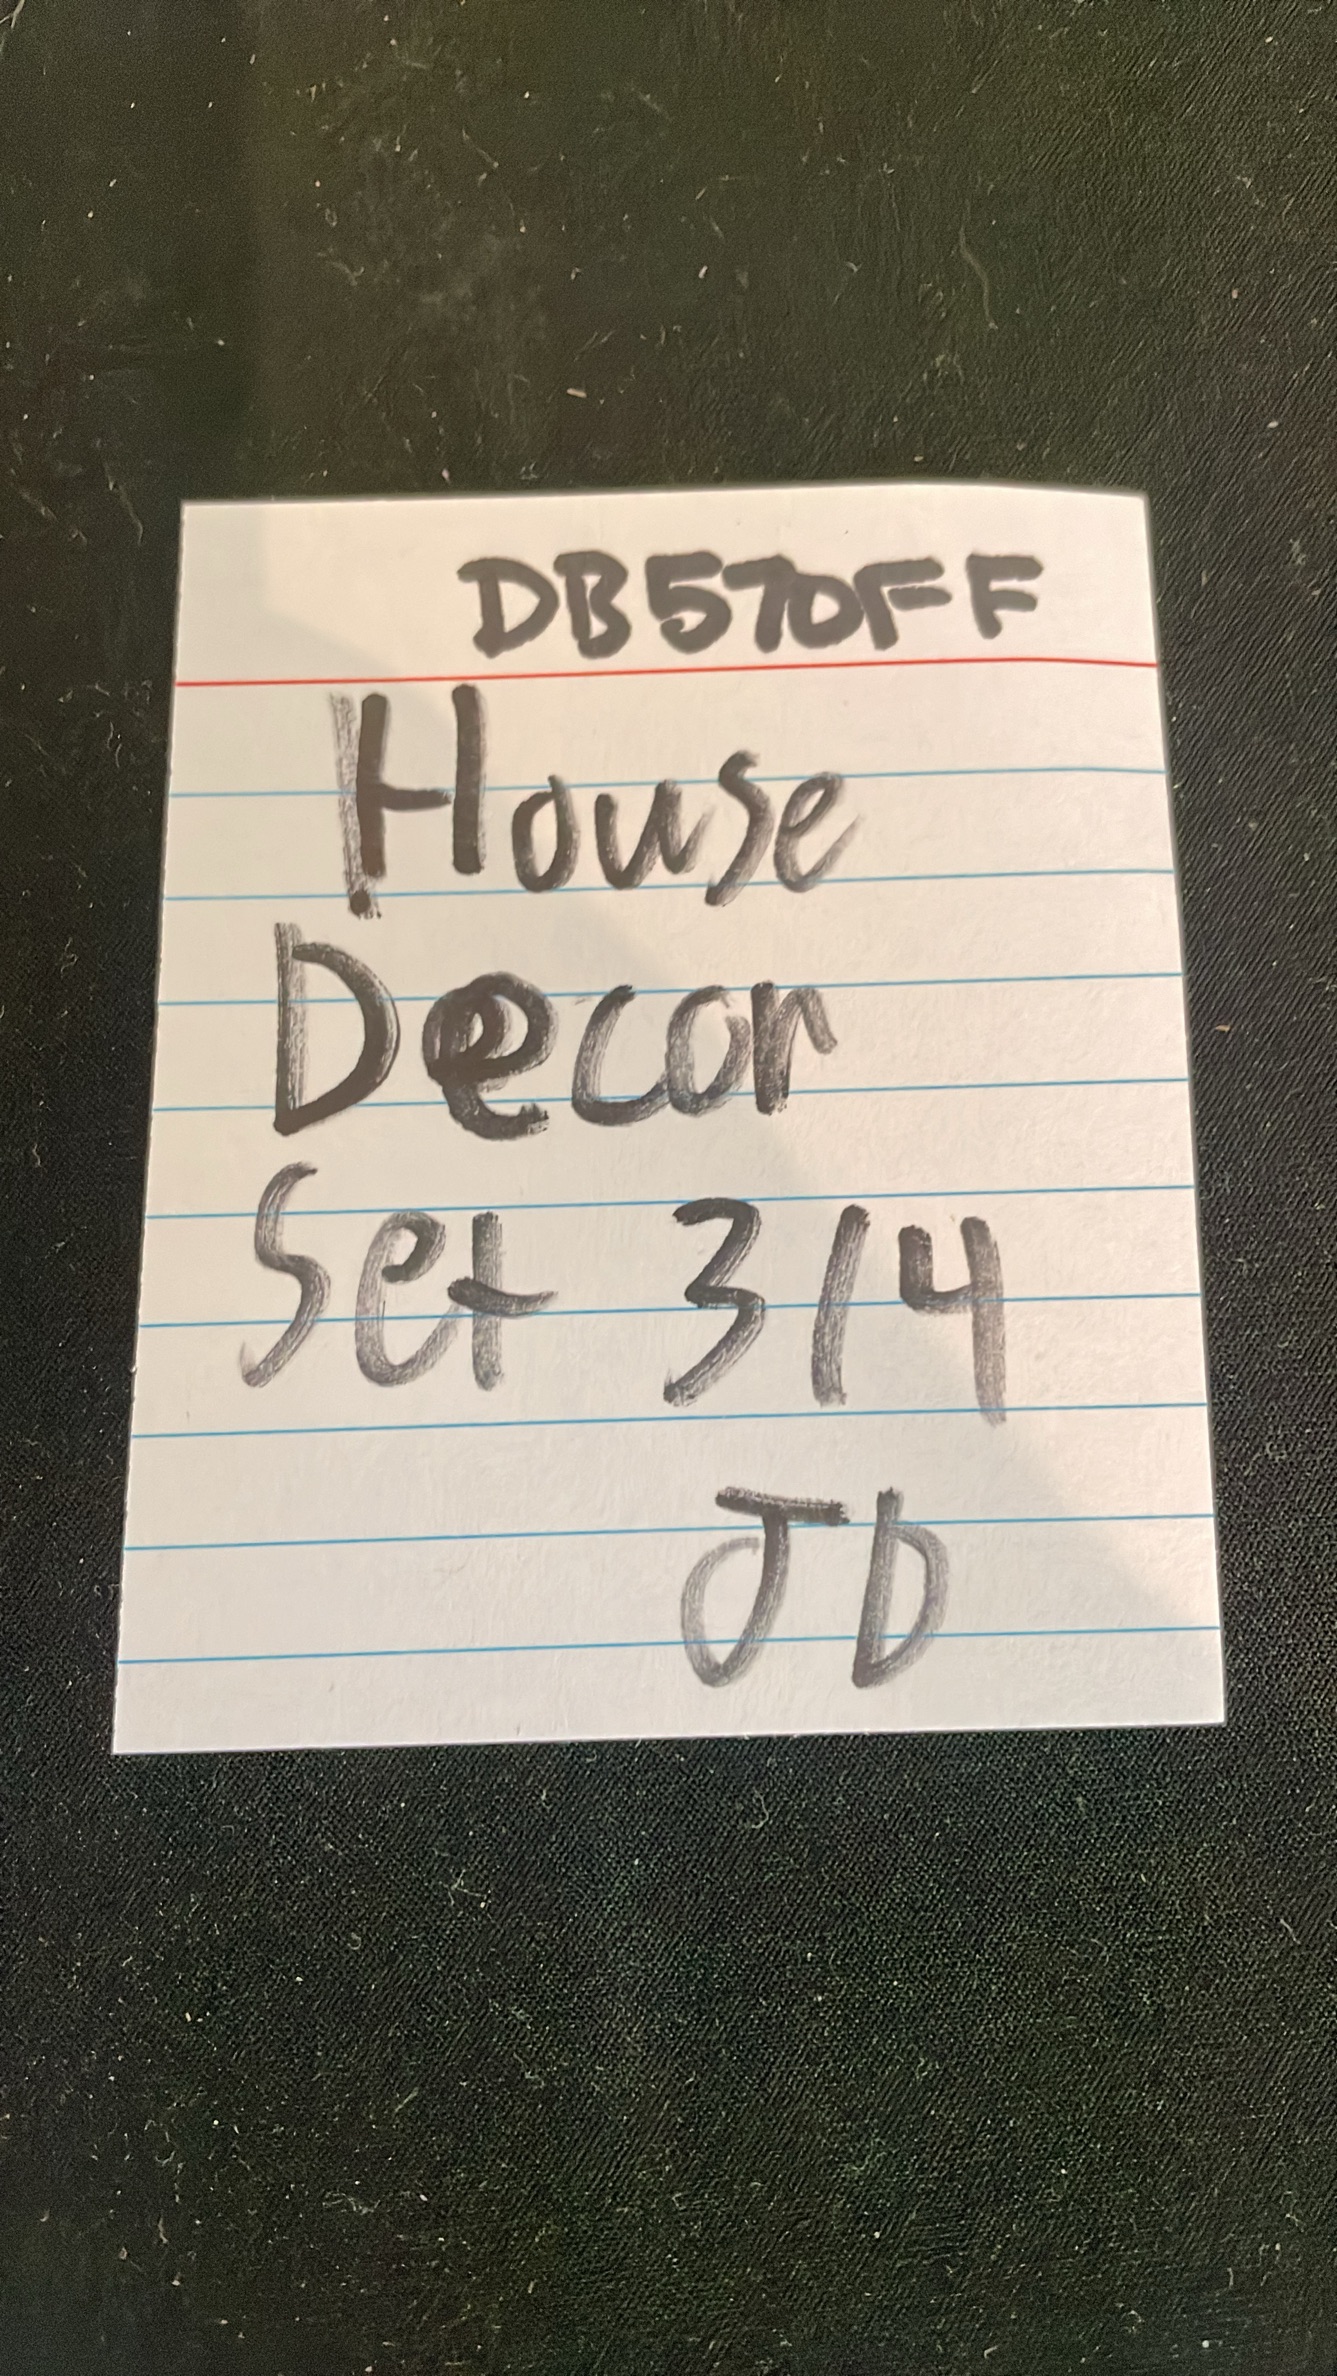 DB570FF
House
Decor
Set 314
JD